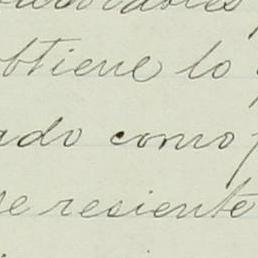 obtiene lo
ado como
se resiente